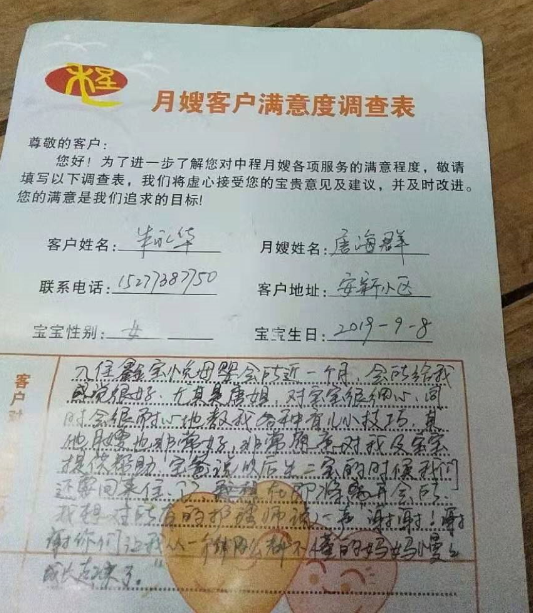 程
月嫂客户满意度调查表
尊敬的客户:
您好!为了进一步了解您对中程月嫂各项服务的满意程度,敬请
填写以下调查表,我们将虚心接受您的宝贵意见及建议,并及时改进。
您的满意是我们追求的目标!
客户姓名: 华 月嫂姓名:唐海群
联系电话:15277387750 客户地址:安新小区
宝宝性别:女 宝宝生日:2019-9-8
客户对
入住鑫宝小悦母婴会所近一个月,会所给我
感觉很好,尤其是唐姐,对宝宝很细心,同
时会很耐心地教我各种育儿小技巧,其
他月嫂也非常好,非常愿意对我及宝宝
提供帮助,宝爸说以后生二宝的时候我们
还要回来住,即将离开会所
我想对所有的护理师说一声谢谢!谢
谢你们让我从一个什么都不懂的妈妈慢慢
成长起来了。